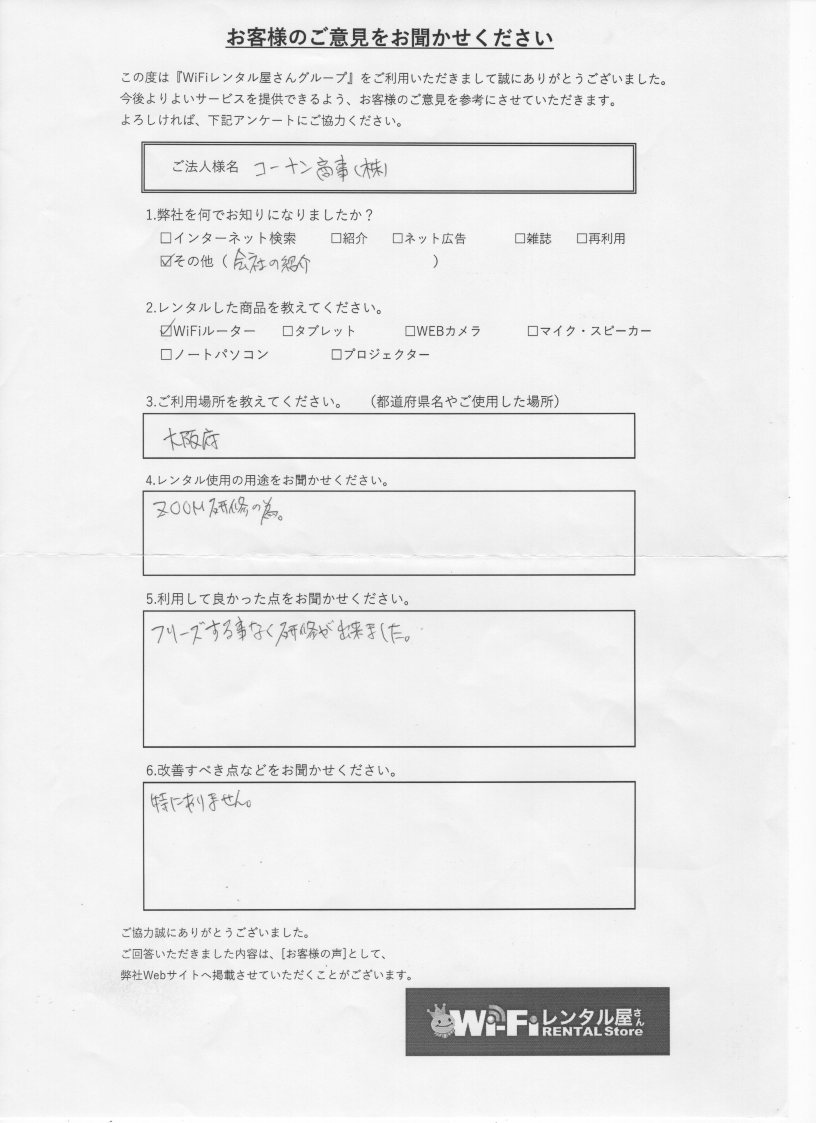 お客様のご意見をお聞かせください
この度は『WiFiレンタル屋さんグループ』をご利用いただきまして誠にありがとうございました。
今後よりよいサービスを提供できるよう、お客様のご意見を参考にさせていただきます。
よろしければ、下記アンケートにご協力ください。
ご法人様名 コーナン商事(株)
1.弊社を何でお知りになりましたか?
□インターネット検索 □紹介 □ネット広告 □雑誌 □再利用
☑その他(会社の紹介)
2.レンタルした商品を教えてください。
☑WiFiルーター □タブレット □WEBカメラ □マイク・スピーカー
□ノートパソコン □プロジェクター
3.ご利用場所を教えてください。 (都道府県名やご使用した場所)
大阪府
4.レンタル使用の用途をお聞かせください。
ZOOM研修の為。
5.利用して良かった点をお聞かせください。
フリーズする事なく研修が出来ました。
6.改善すべき点などをお聞かせください。
特にありません。
ご協力誠にありがとうございました。
ご回答いただきました内容は、[お客様の声]として、
弊社Webサイトへ掲載させていただくことがございます。
Wi-Fiレンタル屋さん
RENTAL Store